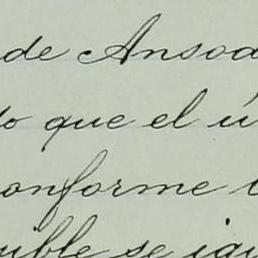 de Ansoa
do que el ú
conforme
uible se igu